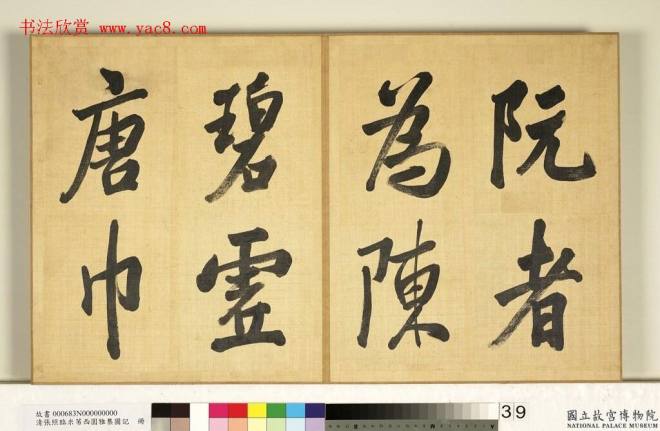 书法欣赏
www.yac8.com
阮者
為陳
碧雲
唐巾
故書 000683N000000000
清張照臨米芾西園雅集圖記 冊
39
國立故宮博物院
NATIONAL PALACE MUSEUM